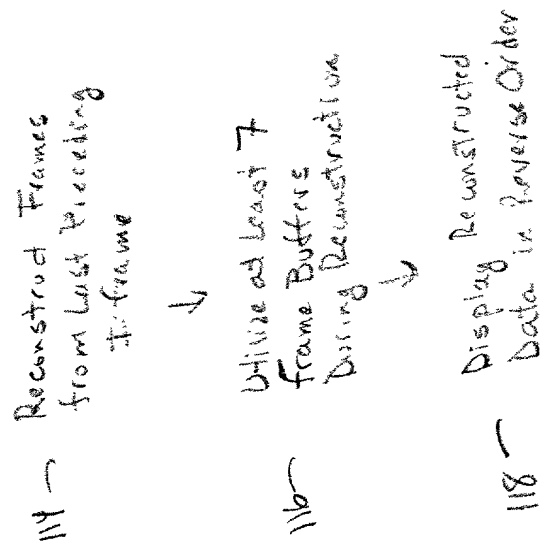 114 — Reconstruct Frames
from Last Preceding
I-frame
↓
116 — Utilize at Least 7
Frame Buffers
During Reconstruction
↓
118 — Display Reconstructed
Data in Reverse Order